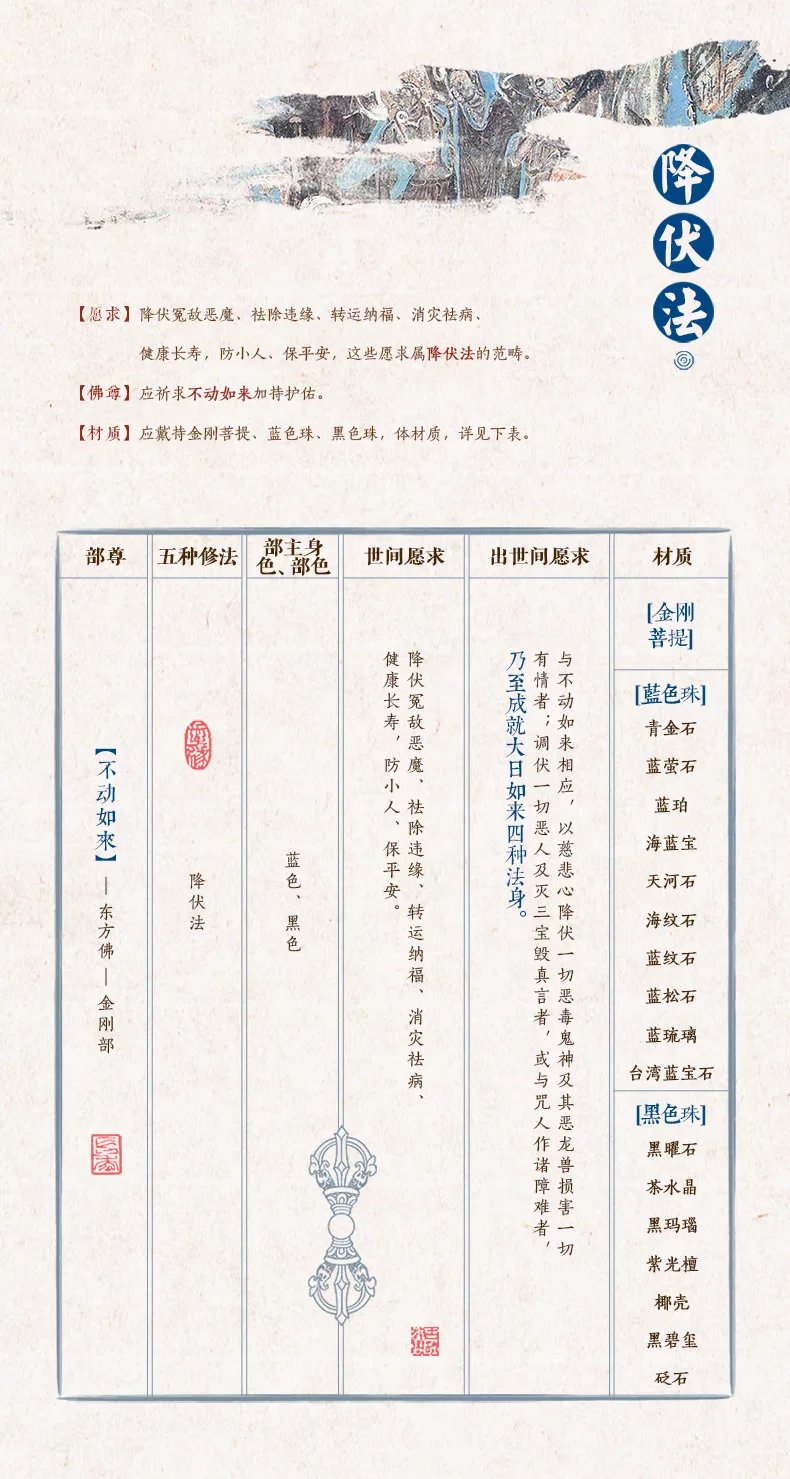 降伏法
【愿求】降伏冤敌恶魔、祛除违缘、转运纳福、消灾祛病、
健康长寿，防小人、保平安，这些愿求属降伏法的范畴。
【佛尊】应祈求不动如来加持护佑。
【材质】应戴持金刚菩提、蓝色珠、黑色珠，体材质，详见下表。
部尊
五种修法
部主身
色、部色
世间愿求
出世间愿求
材质
【不动如來】— 东方佛 — 金刚部
降伏法
蓝色、黑色
降伏冤敌恶魔、祛除违缘、转运纳福、消灾祛病、
健康长寿，防小人、保平安。
与不动如来相应，以慈悲心降伏一切恶毒鬼神及其恶龙兽损害一切
有情者；调伏一切恶人及灭三宝毁真言者，或与咒人作诸障难者，
乃至成就大日如来四种法身。
[金刚
菩提]
[藍色珠]
青金石
蓝萤石
蓝珀
海蓝宝
天河石
海纹石
蓝纹石
蓝松石
蓝琉璃
台湾蓝宝石
[黑色珠]
黑曜石
茶水晶
黑玛瑙
紫光檀
椰壳
黑碧玺
砭石